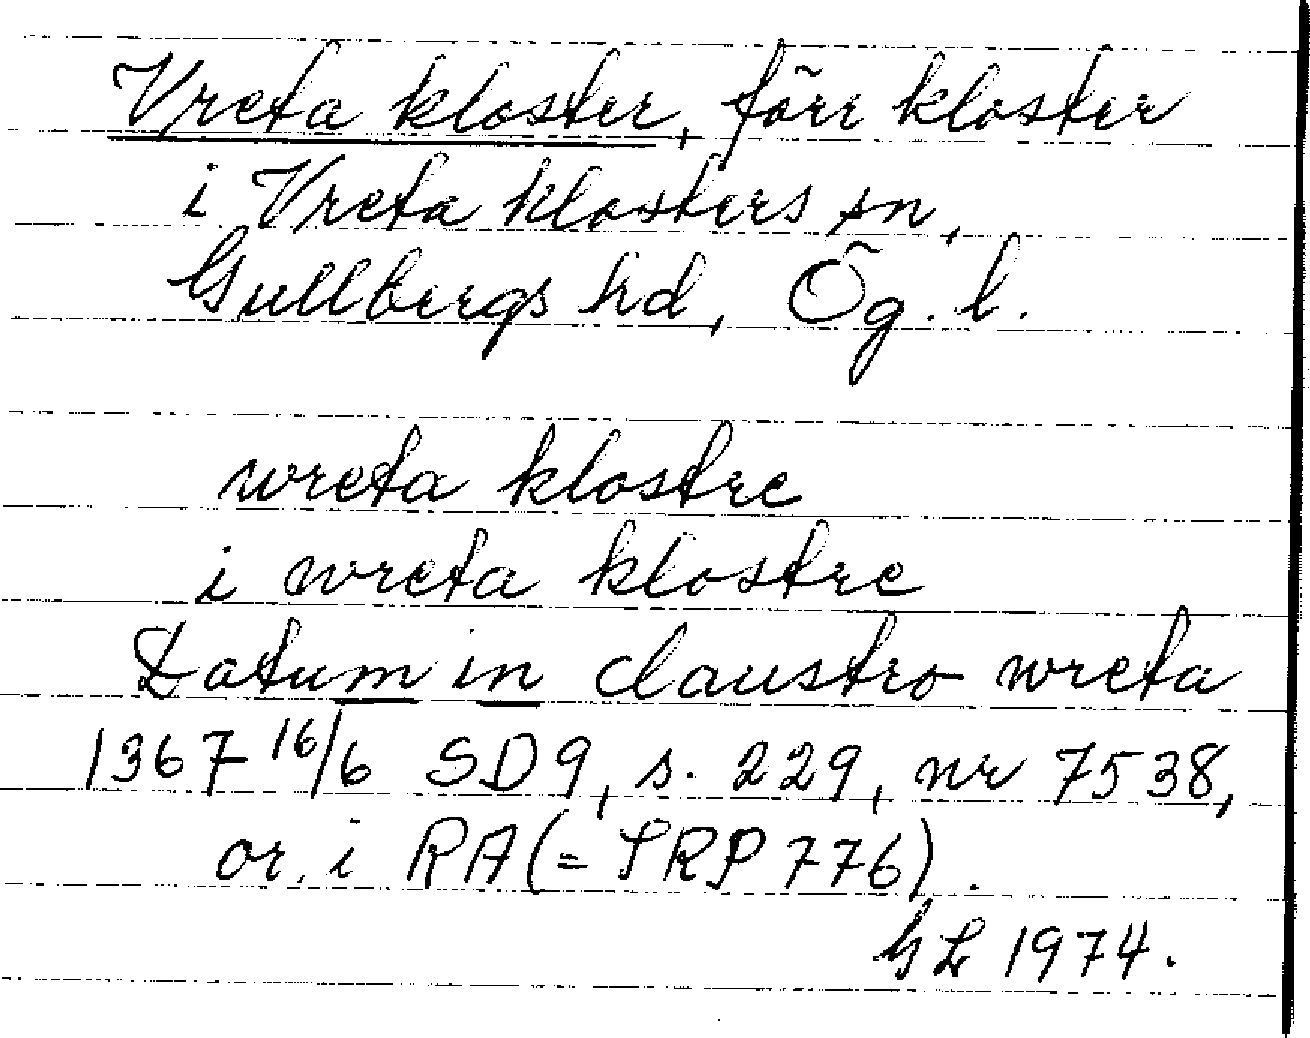 Vreta kloster, förr kloster
i Vreta klosters sn,
Gullbergs hd, Ög. l.
wreta klostre
i wreta klostre
Datum in claustro wreta
1367 16/6 SD9, s. 229, nr 7538,
or. i RA (= SRP 776).
GL 1974.